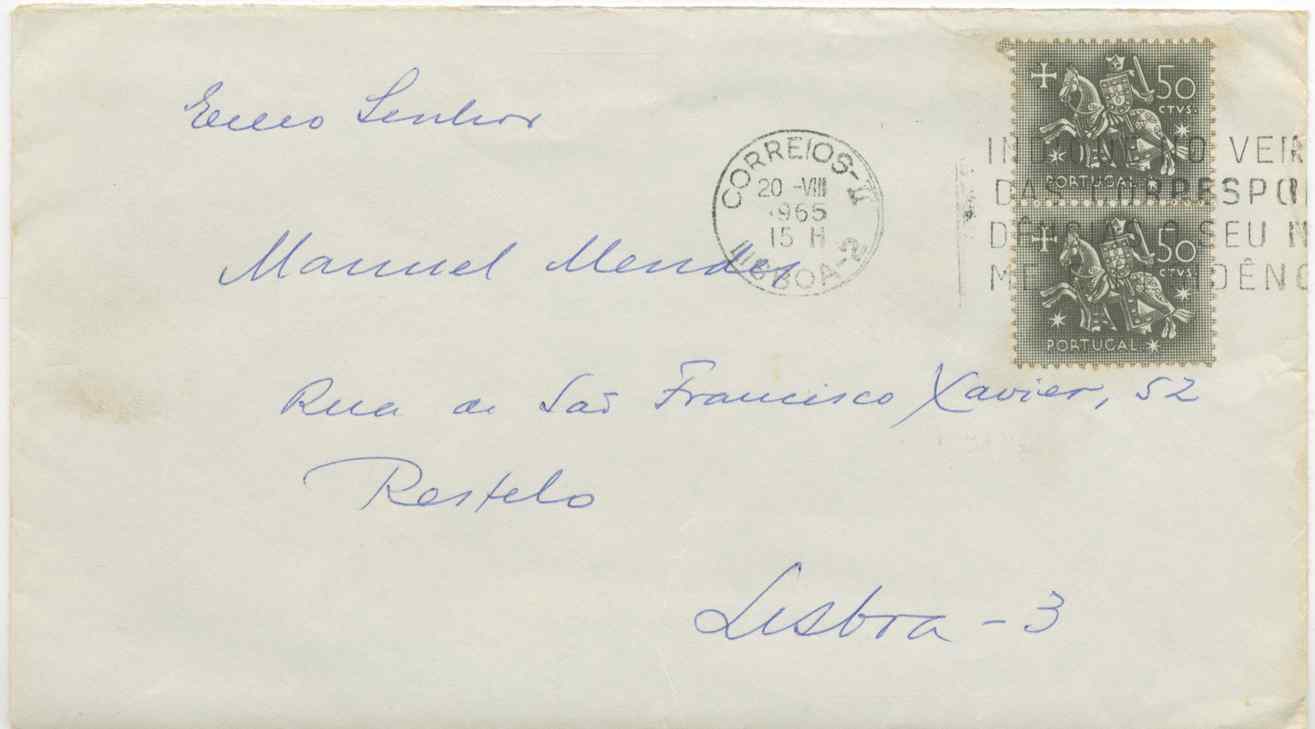 Exmo Senhor
Manuel Mendes
Rua de São Francisco Xavier, 52
Restelo
Lisboa - 3
CORREIOS-
20 -VIII
965
15 H
LISBOA-2
NO VER
DAS CORRESPON
SEU N
50
CTVS.
PORTUGAL
50
CTVS.
PORTUGAL